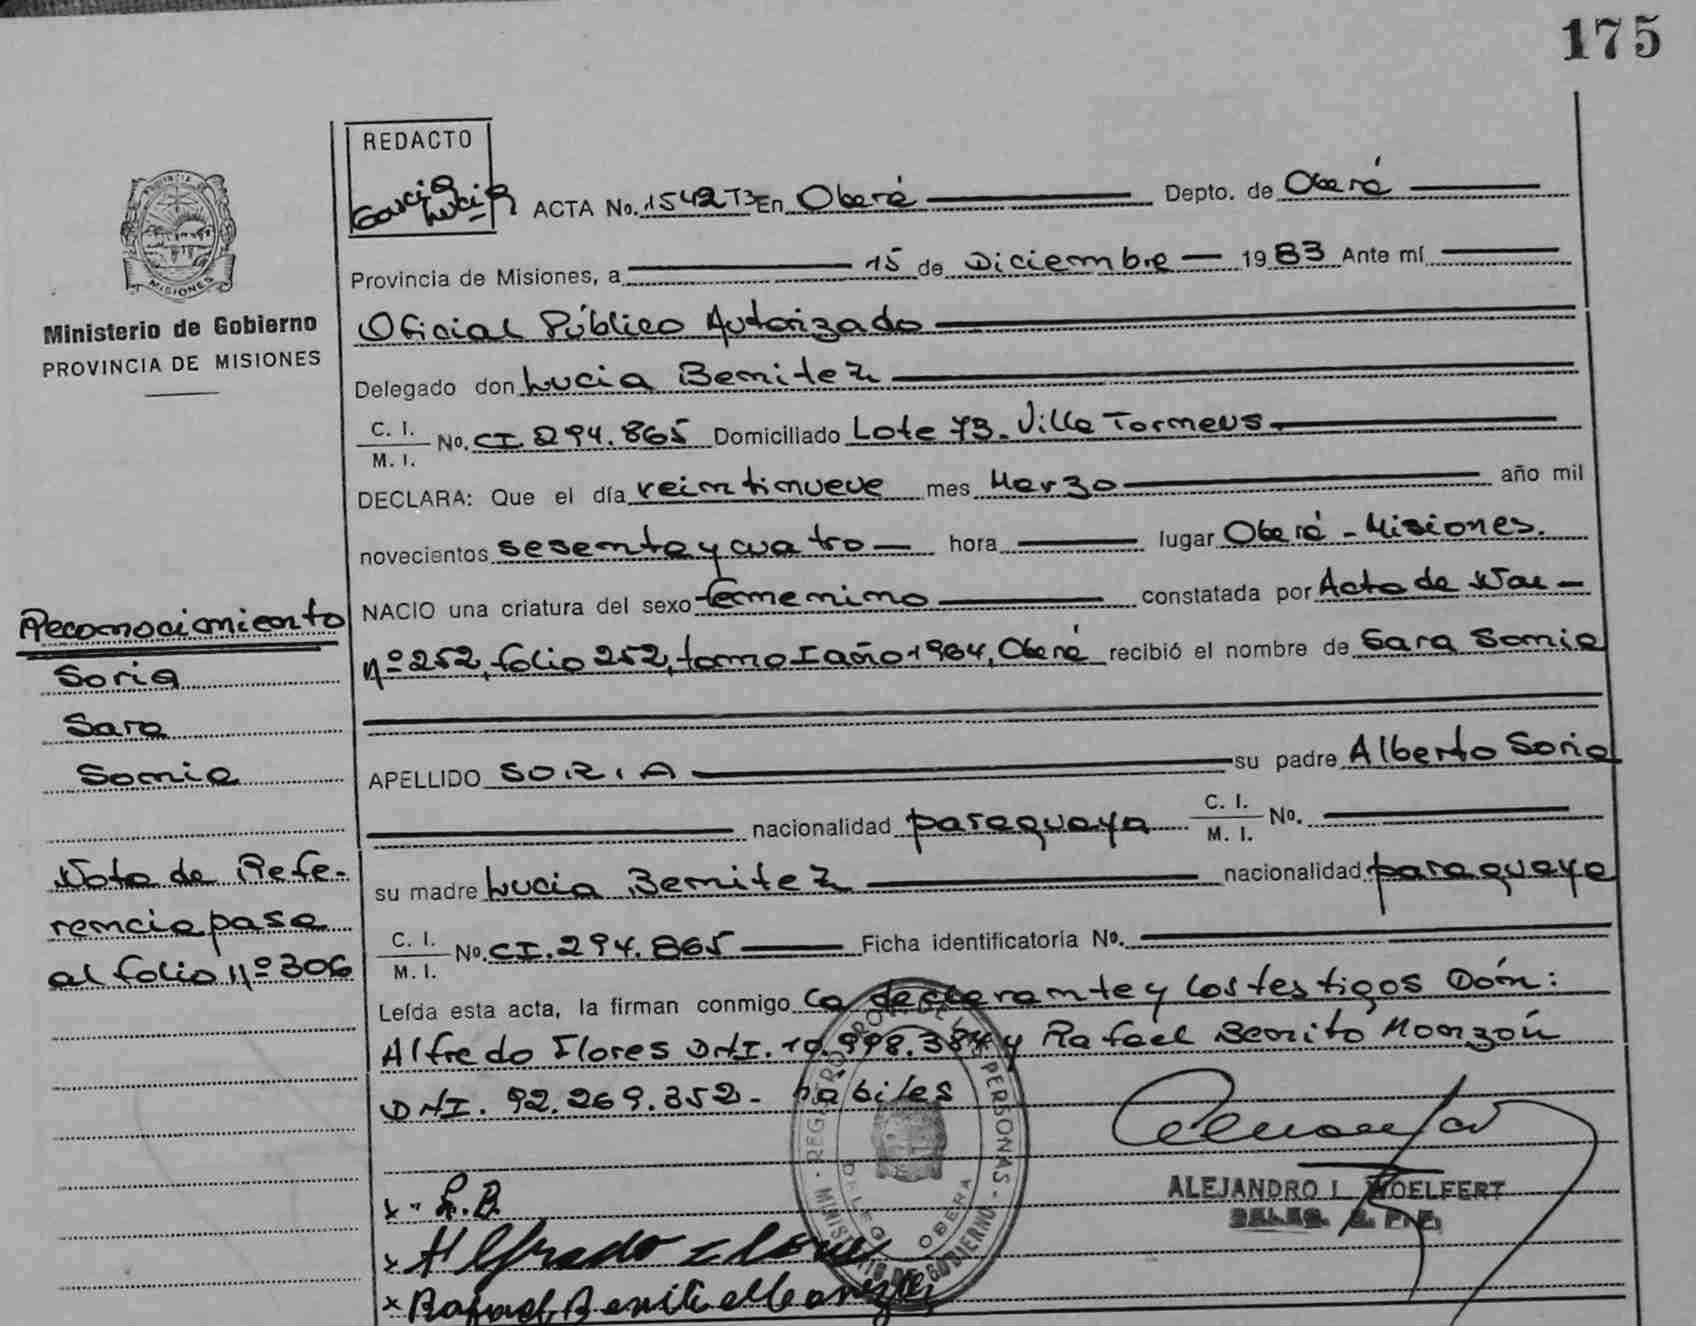 175
REDACTO
García Lucía
ACTA No. 1542 T3 En Oberá Depto. de Oberá
Provincia de Misiones, a 15 de Diciembre 1983 Ante mí
Oficial Público Autorizado
Delegado don Lucia Benitez
C. I. / M. I. No. CI 294.865 Domiciliado Lote 73. Villa
DECLARA: Que el día veintinueve mes Marzo año mil
novecientos sesenta y cuatro hora lugar Oberá - Misiones.
NACIO una criatura del sexo femenino constatada por Acta de Nac-
nº 252, folio 252, tomo I año 1964, Oberá recibió el nombre de Sara Sonia
APELLIDO SORIA su padre Alberto Soria
nacionalidad paraguaya C. I. / M. I. No.
su madre Lucia Benitez nacionalidad paraguaya
C. I. / M. I. No. CI. 294.865 Ficha identificatoria No.
Leída esta acta, la firman conmigo La declarante y los testigos Don:
Alfredo Flores DNI. 10.998.384 y Rafael Benito Monzón
DNI. 92.269.352- hábiles
x - L.B.
x Alfredo Flores
x Rafael Benito Monzón
ALEJANDRO I. WOELFERT
REGISTRO PROV. DE LAS PERSONAS - MINISTERIO DE GOBIERNO
DELEG. OBERA
PROVINCIA DE
MISIONES
Ministerio de Gobierno
PROVINCIA DE MISIONES
Reconocimiento
Soria
Sara
Sonia
Nota de Refe-
rencia pasa
al folio nº 306